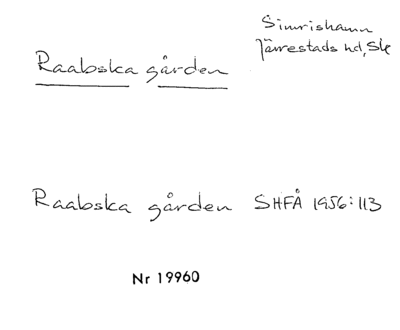 Simrishamn
Järrestads hd, Sk
Raabska gården
Raabska gården SHFÅ 1956:113
Nr 19960